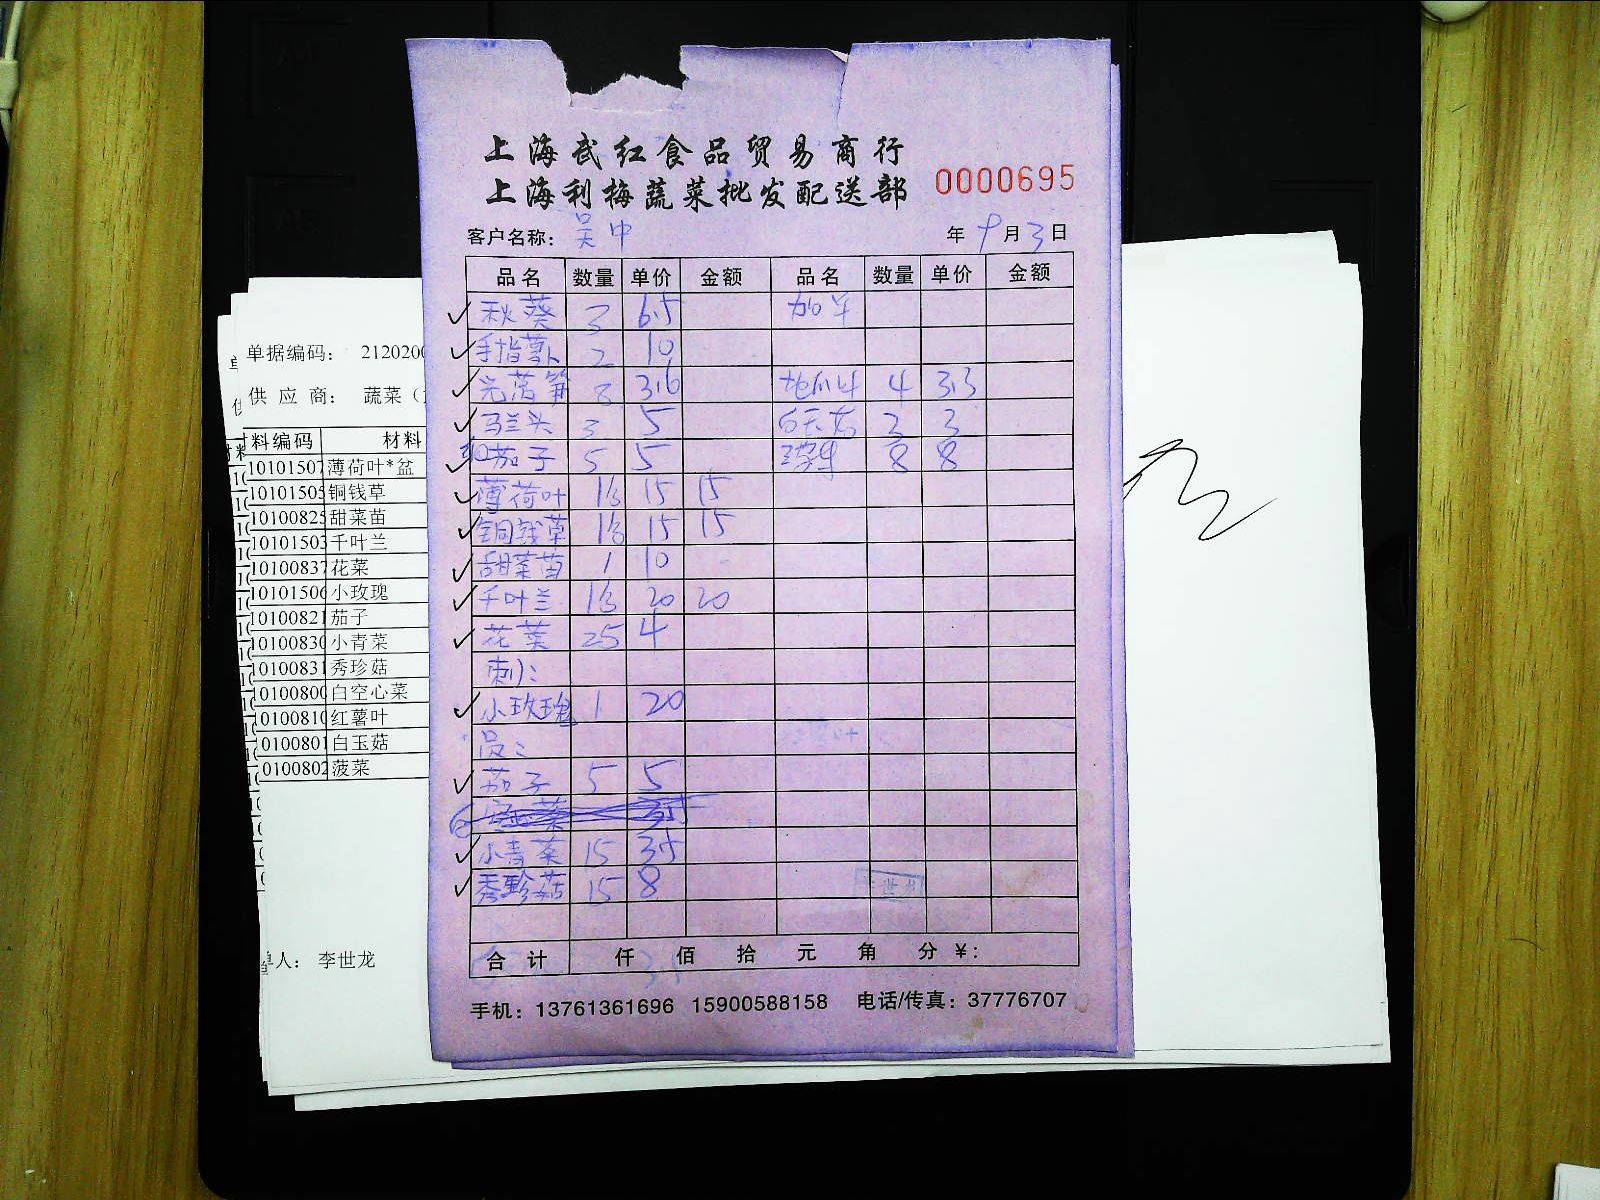 上海武红食品贸易商行
上海利梅蔬菜批发配送部
0000695
客户名称: 吴中 年 9月3日
品名 数量 单价 金额 品名 数量 单价 金额
秋葵 3 6.5 加单
手指萝卜 2 10
光莴笋 8 3.6 地瓜叶 4 3.3
马兰头 3 5 3
茄子 5 5 8 8
薄荷叶 1盆 15 15
铜钱草 1盆 15 15
甜菜苗 1 10
千叶兰 1盆 20 20
花菜 25 4
刺:
小玫瑰 1 20
员:
茄子 5 5
小青菜 15 3.5
秀珍菇 15 8
合计 仟 佰 拾 元 角 分 ¥:
手机: 13761361696 15900588158 电话/传真: 37776707
单据编码: 2120200
供应商: 蔬菜
料编码 材料
10101507 薄荷叶*盆
10101505 铜钱草
10100825 甜菜苗
10101503 千叶兰
10100837 花菜
10101506 小玫瑰
10100821 茄子
10100830 小青菜
10100831 秀珍菇
10100800 白空心菜
10100810 红薯叶
0100801 白玉菇
0100802 菠菜
单人: 李世龙